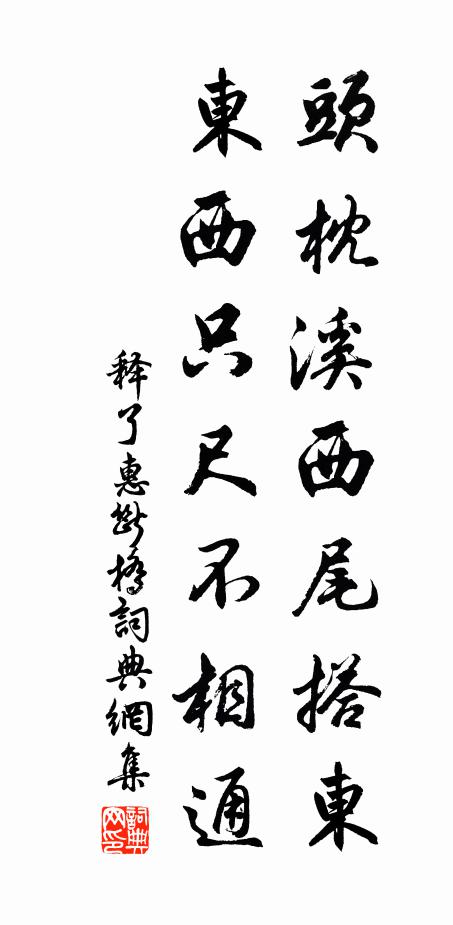 頭枕溪西尾搭東
東西只尺不相通
释了惠断橋詞典網集
詞典网印